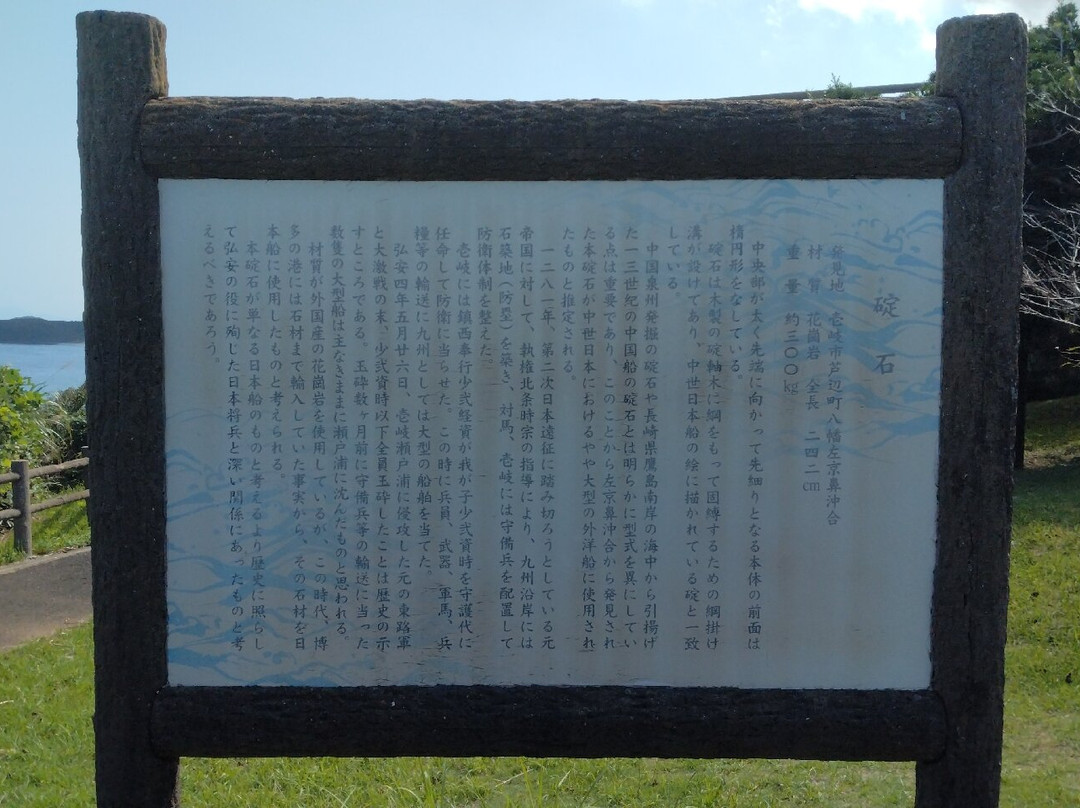 碇石
発見地 壱岐市芦辺町八幡左京鼻沖合
材質 花崗岩 全長 二四二㎝
重量 約三〇〇㎏
中央部が太く先端に向かって先細りとなる本体の前面は
楕円形をなしている。
碇石は木製の碇軸木に綱をもって固縛するための綱掛け
溝が設けてあり、中世日本船の絵に描かれている碇と一致
している。
中国泉州発掘の碇石や長崎県鷹島南岸の海中から引揚げ
た一三世紀の中国船の碇石とは明らかに型式を異にしてい
る点は重要であり、このことから左京鼻沖合から発見され
た本碇石が中世日本におけるやや大型の外洋船に使用され
たものと推定される。
一二八一年、第二次日本遠征に踏み切ろうとしている元
帝国に対して、執権北条時宗の指導により、九州沿岸には
石築地(防塁)を築き、対馬、壱岐には守備兵を配置して
防衛体制を整えた。
壱岐には鎮西奉行少弐経資が我が子少弐資時を守護代に
任命して防衛に当らせた。この時に兵員、武器、軍馬、兵
糧等の輸送に九州としては大型の船舶を当てた。
弘安四年五月廿六日、壱岐瀬戸浦に侵攻した元の東路軍
と大激戦の末、少弐資時以下全員玉砕したことは歴史の示
すところである。玉砕数ヶ月前に守備兵等の輸送に当った
数隻の大型船は主なきままに瀬戸浦に沈んだものと思われる。
材質が外国産の花崗岩を使用しているが、この時代、博
多の港には石材まで輸入していた事実から、その石材を日
本船に使用したものと考えられる。
本碇石が単なる日本船のものと考えるより歴史に照らし
て弘安の役に殉じた日本将兵と深い関係にあったものと考
えるべきであろう。